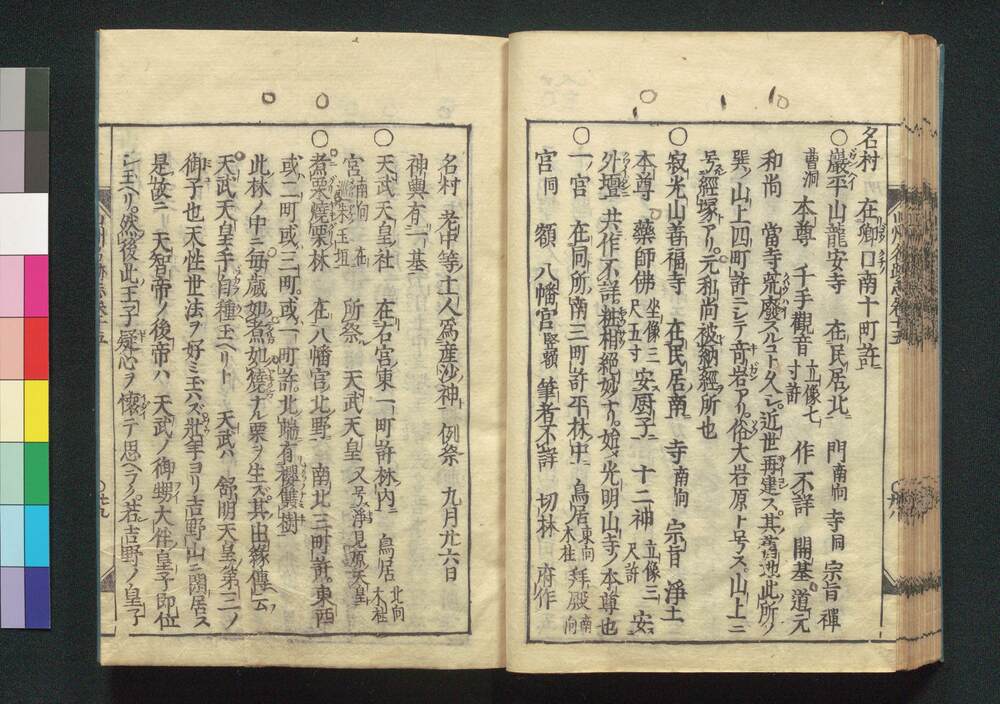 名村 在郷口南十町許
○巖平山龍安寺 在民居北 門南向 寺同 宗旨禪
曹洞 本尊 千手觀音 立像七寸許 作不詳 開基 道元
和尚 當寺荒廢スルコト久シ近世再建ス其舊地此所ノ
巽ノ山上四町許ニシテ竒岩アリ俗大岩原ト号ス山上ニ
号經塚アリ元和尚被納經所也
○寂光山善福寺 在民居南 寺南向 宗旨 淨土
本尊 藥師佛 坐像三尺五寸 安厨子ニ 十二神 立像三尺許 安
外壇ニ 共作不詳粧相絶妙ナリ始メ光明山寺ノ本尊也
○一ノ宮 在同所南三町許平林中 鳥居東向木柱 拜殿南向
宮同 額 八幡宮竪額 筆者不詳 切林 府作
名村 老中等土人為産沙神 例祭 九月廿六日
神輿有二基
○天武天皇社 在右宮東一町許林内 鳥居北向木柱
宮南向 在瑞朱玉垣 所祭 天武天皇 又号淨見原天皇
○煮栗燒栗林 在八幡宮北野 南北三町許東西
或二町或三町或一町許北端有櫻雙樹
此林ノ中ニ毎歳如煮如燒ナル栗ヲ生ス其由縁傳云
天武天皇手自種玉ヘリト 天武ハ 舒明天皇第二ノ
御子也天性世法ヲ好ミ玉ハズ壯年ヨリ吉野ノ山ニ閑居ス
是故ニ 天智帝ノ後帝ハ 天武ノ御甥大伴皇子即位
シ玉ヘリ然後此王子疑心ヲ懐テ思ヘラク若吉野ノ皇子